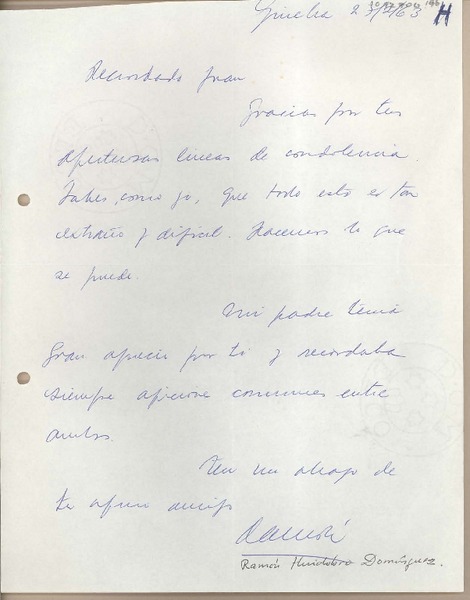 Ginebra 23/2/63 H
Recordado Juan
Gracias por tus
afectuosas líneas de condolencia.
Sabes, como yo, que todo esto es tan
extraño y difícil. Hacemos lo que
se puede.
Mi padre tenía
gran aprecio por ti y recordaba
siempre aficiones comunes entre
ambos.
Ten un abrazo de
tu afmo amigo
Ramón
Ramón Huidobro Domínguez.